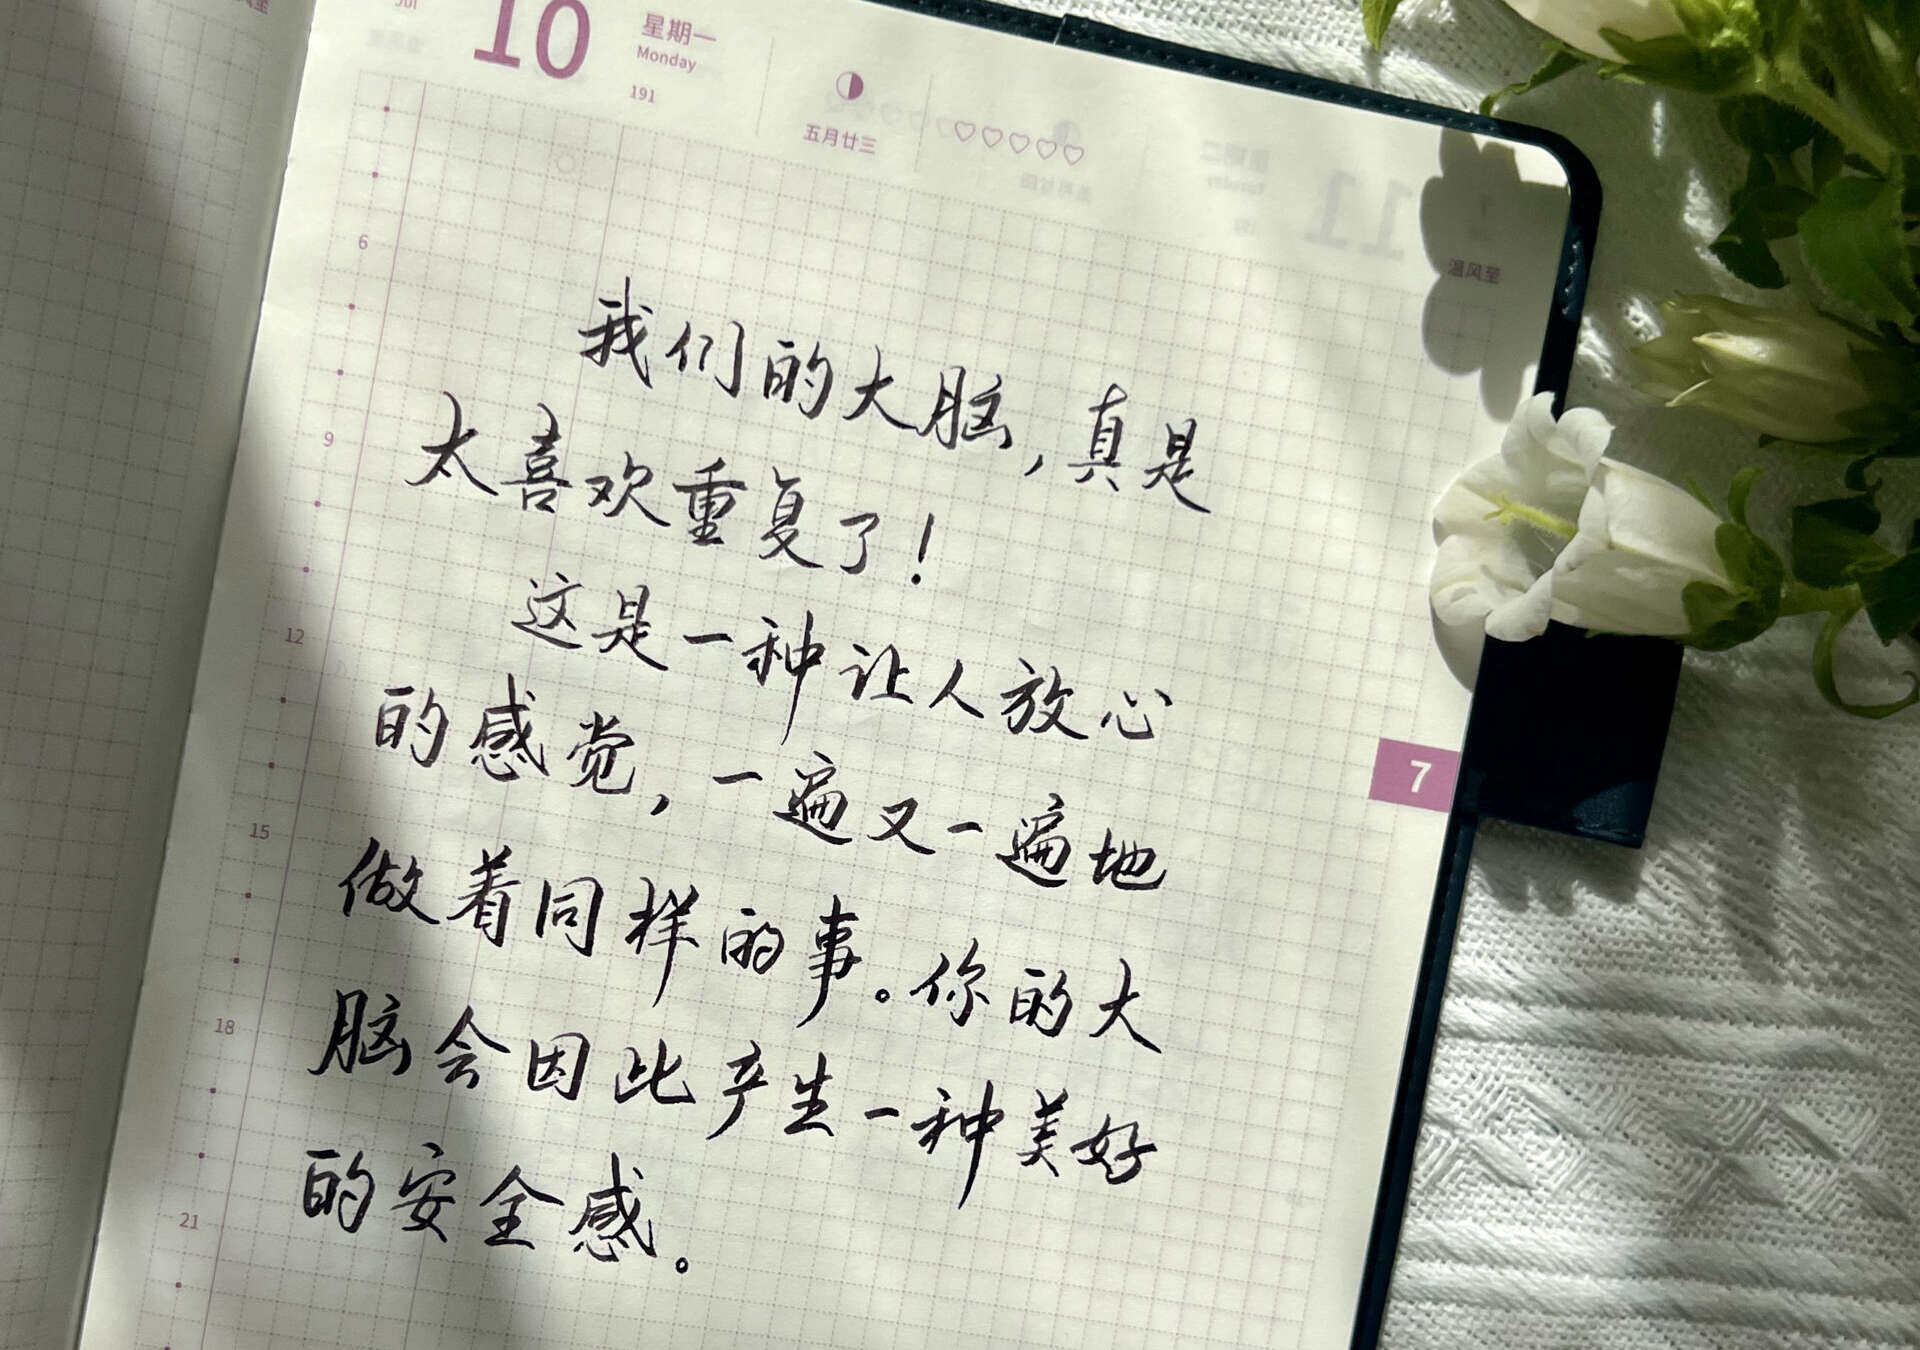 JUL
10
星期一
Monday
191
五月廿三
温风至
6
9
12
15
18
21
7
我们的大脑，真是
太喜欢重复了！
这是一种让人放心
的感觉，一遍又一遍地
做着同样的事。你的大
脑会因此产生一种美好
的安全感。